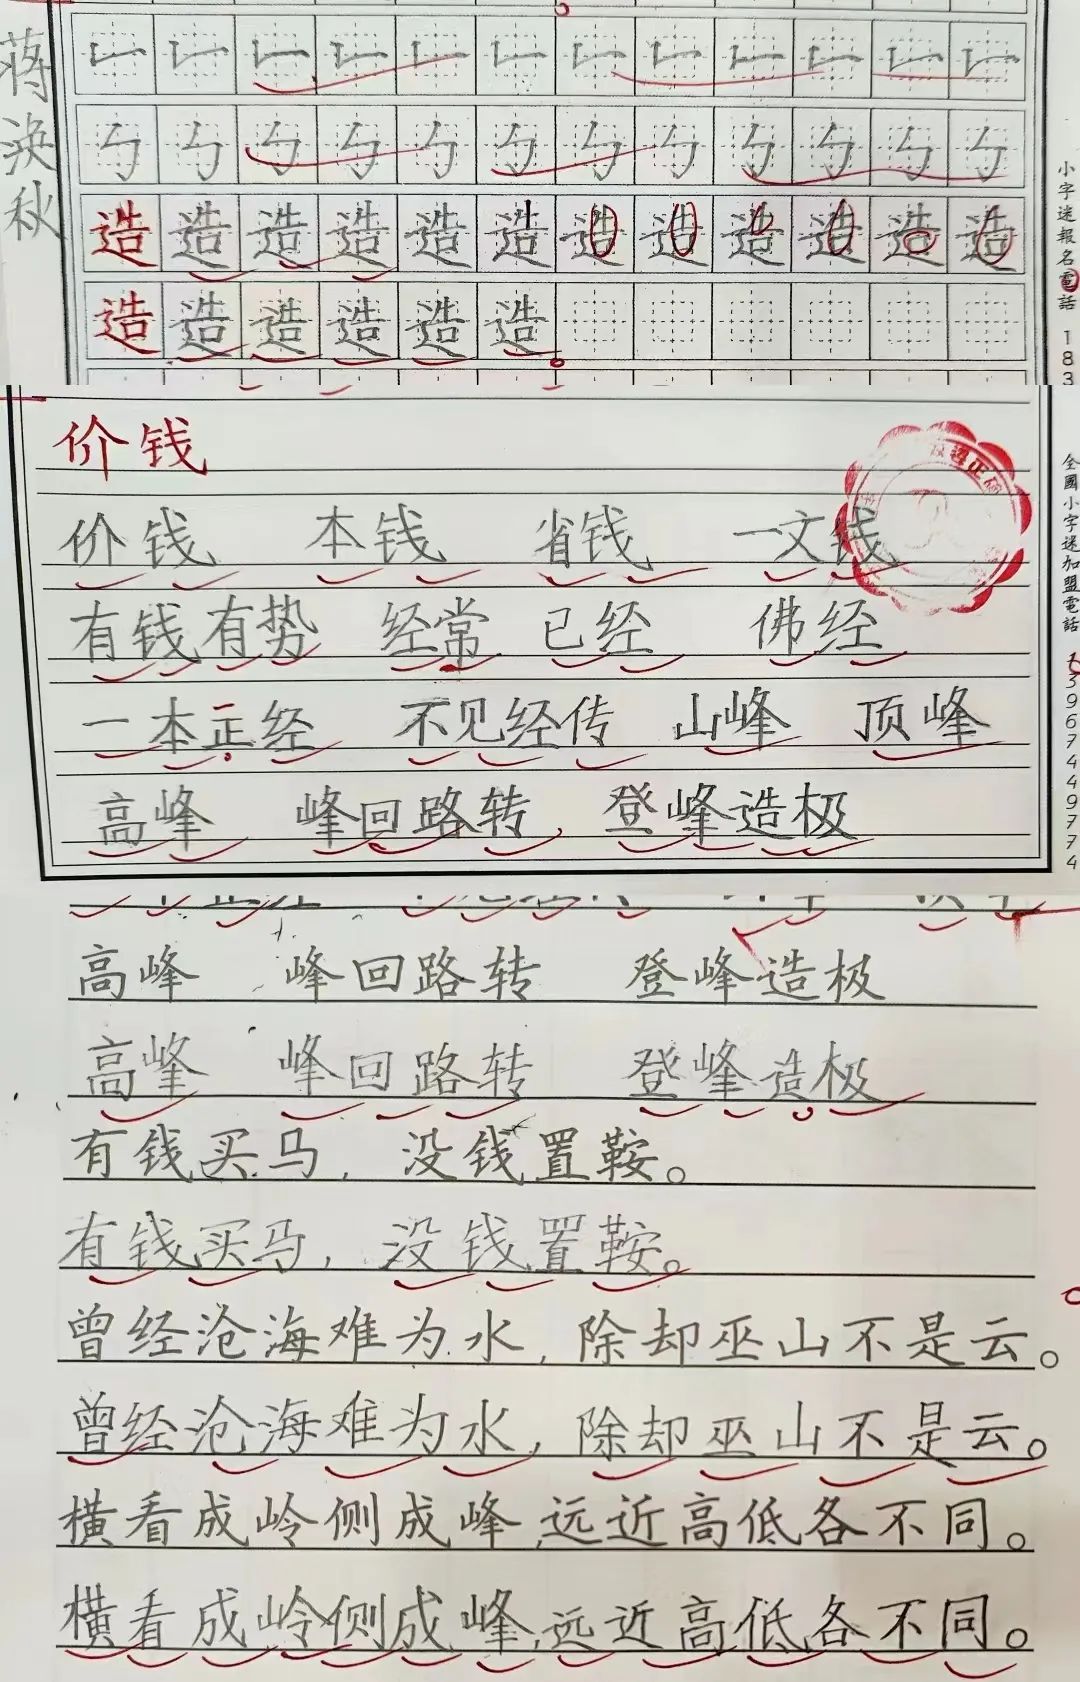 蒋涣秋
造 造 造 造 造 造 造 造 造 造 造 造
造 造 造 造 造 造
小字迷報名電話 183
价钱
价钱 本钱 省钱 一文钱
有钱有势 经常 已经 佛经
一本正经 不见经传 山峰 顶峰
高峰 峰回路转, 登峰造极
全國小字迷加盟電話 13967449774
高峰 峰回路转 登峰造极
高峰 峰回路转 登峰造极
有钱买马, 没钱置鞍。
有钱买马, 没钱置鞍。
曾经沧海难为水, 除却巫山不是云。
曾经沧海难为水, 除却巫山不是云。
横看成岭侧成峰,远近高低各不同。
横看成岭侧成峰,远近高低各不同。